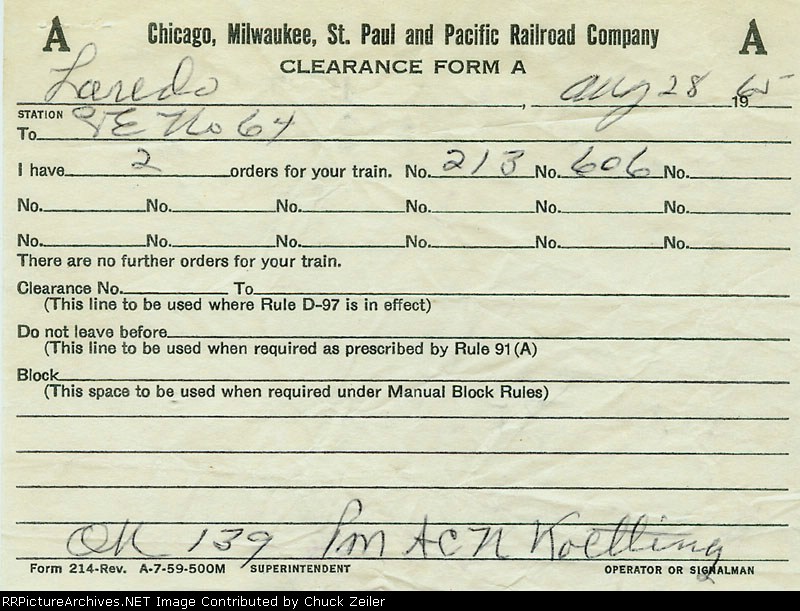 A Chicago, Milwaukee, St. Paul and Pacific Railroad Company A
CLEARANCE FORM A
Laredo , Aug 28 1965
STATION
To C&E No 64
I have 2 orders for your train. No. 213 No. 606 No.
No. No. No. No. No. No.
No. No. No. No. No. No.
There are no further orders for your train.
Clearance No. To
(This line to be used where Rule D-97 is in effect)
Do not leave before
(This line to be used when required as prescribed by Rule 91(A)
Block
(This space to be used when required under Manual Block Rules)
OK 139 PM ACN Koetting
Form 214-Rev. A-7-59-500M SUPERINTENDENT OPERATOR OR SIGNALMAN
RRPictureArchives.NET Image Contributed by Chuck Zeiler